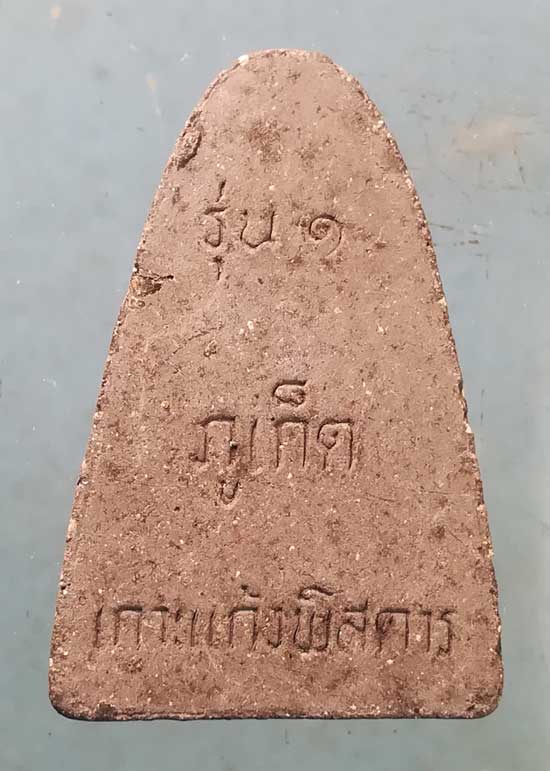 รุ่น ๑
ภูเก็ต
เกาะแก้วพิสดาร